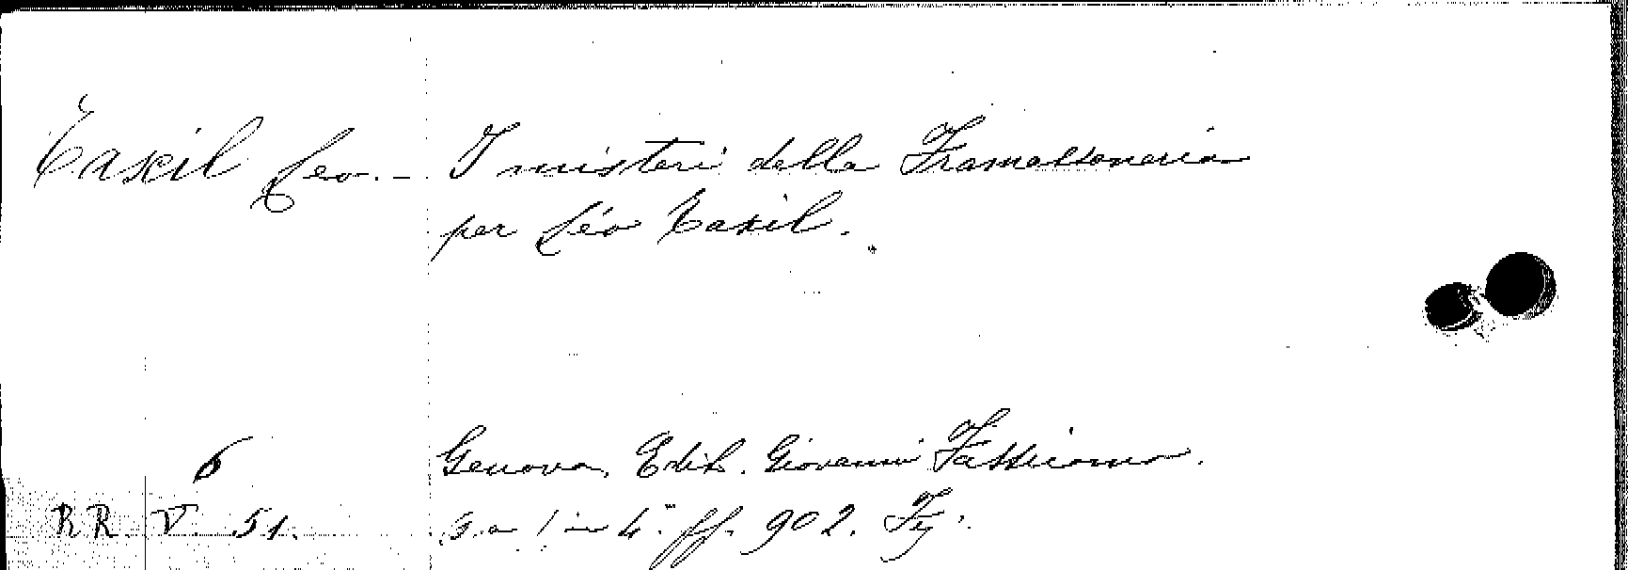 Taxil Leo. - I misteri della Framassoneria
per Léo Taxil.
Genova, Edit. Giovanni Fassicomo.
6
RR. V. 51. s. a 1 in 4.° ff. 902. Fig.